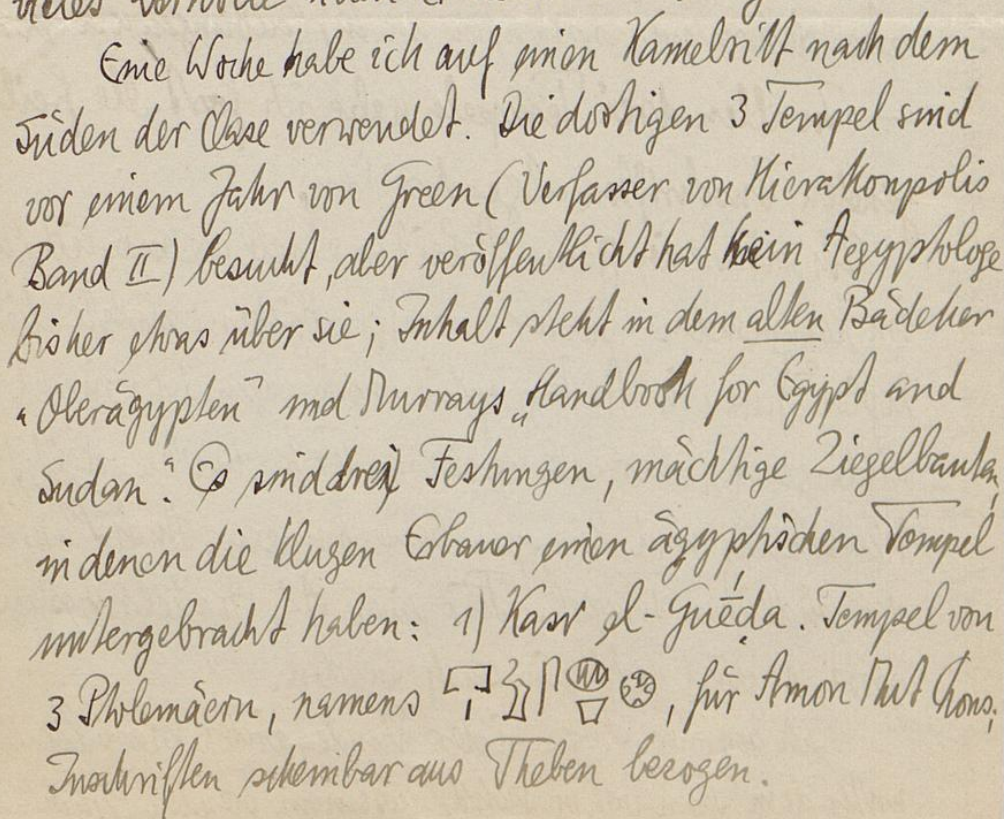 Eine Woche habe ich auf einen Kamelritt nach dem
Süden der Oase verwendet. Die dortigen 3 Tempel sind
vor einem Jahr von Green (Verfasser von Hierakonpolis
Band II) besucht, aber veröffentlicht hat kein Aegyptologe
bisher etwas über sie; Inhalt steht in dem alten Bädeker
„Oberägypten“ und Murrays „Handbook for Egypt and
Sudan“. Es sind drei Festungen, mächtige Ziegelbauten,
in denen die klugen Erbauer einen ägyptischen Tempel
untergebracht haben: 1) Kasr el-Guéda. Tempel von
3 Ptolemäern, namens , für Amon Mut Chons;
Inschriften scheinbar aus Theben bezogen.